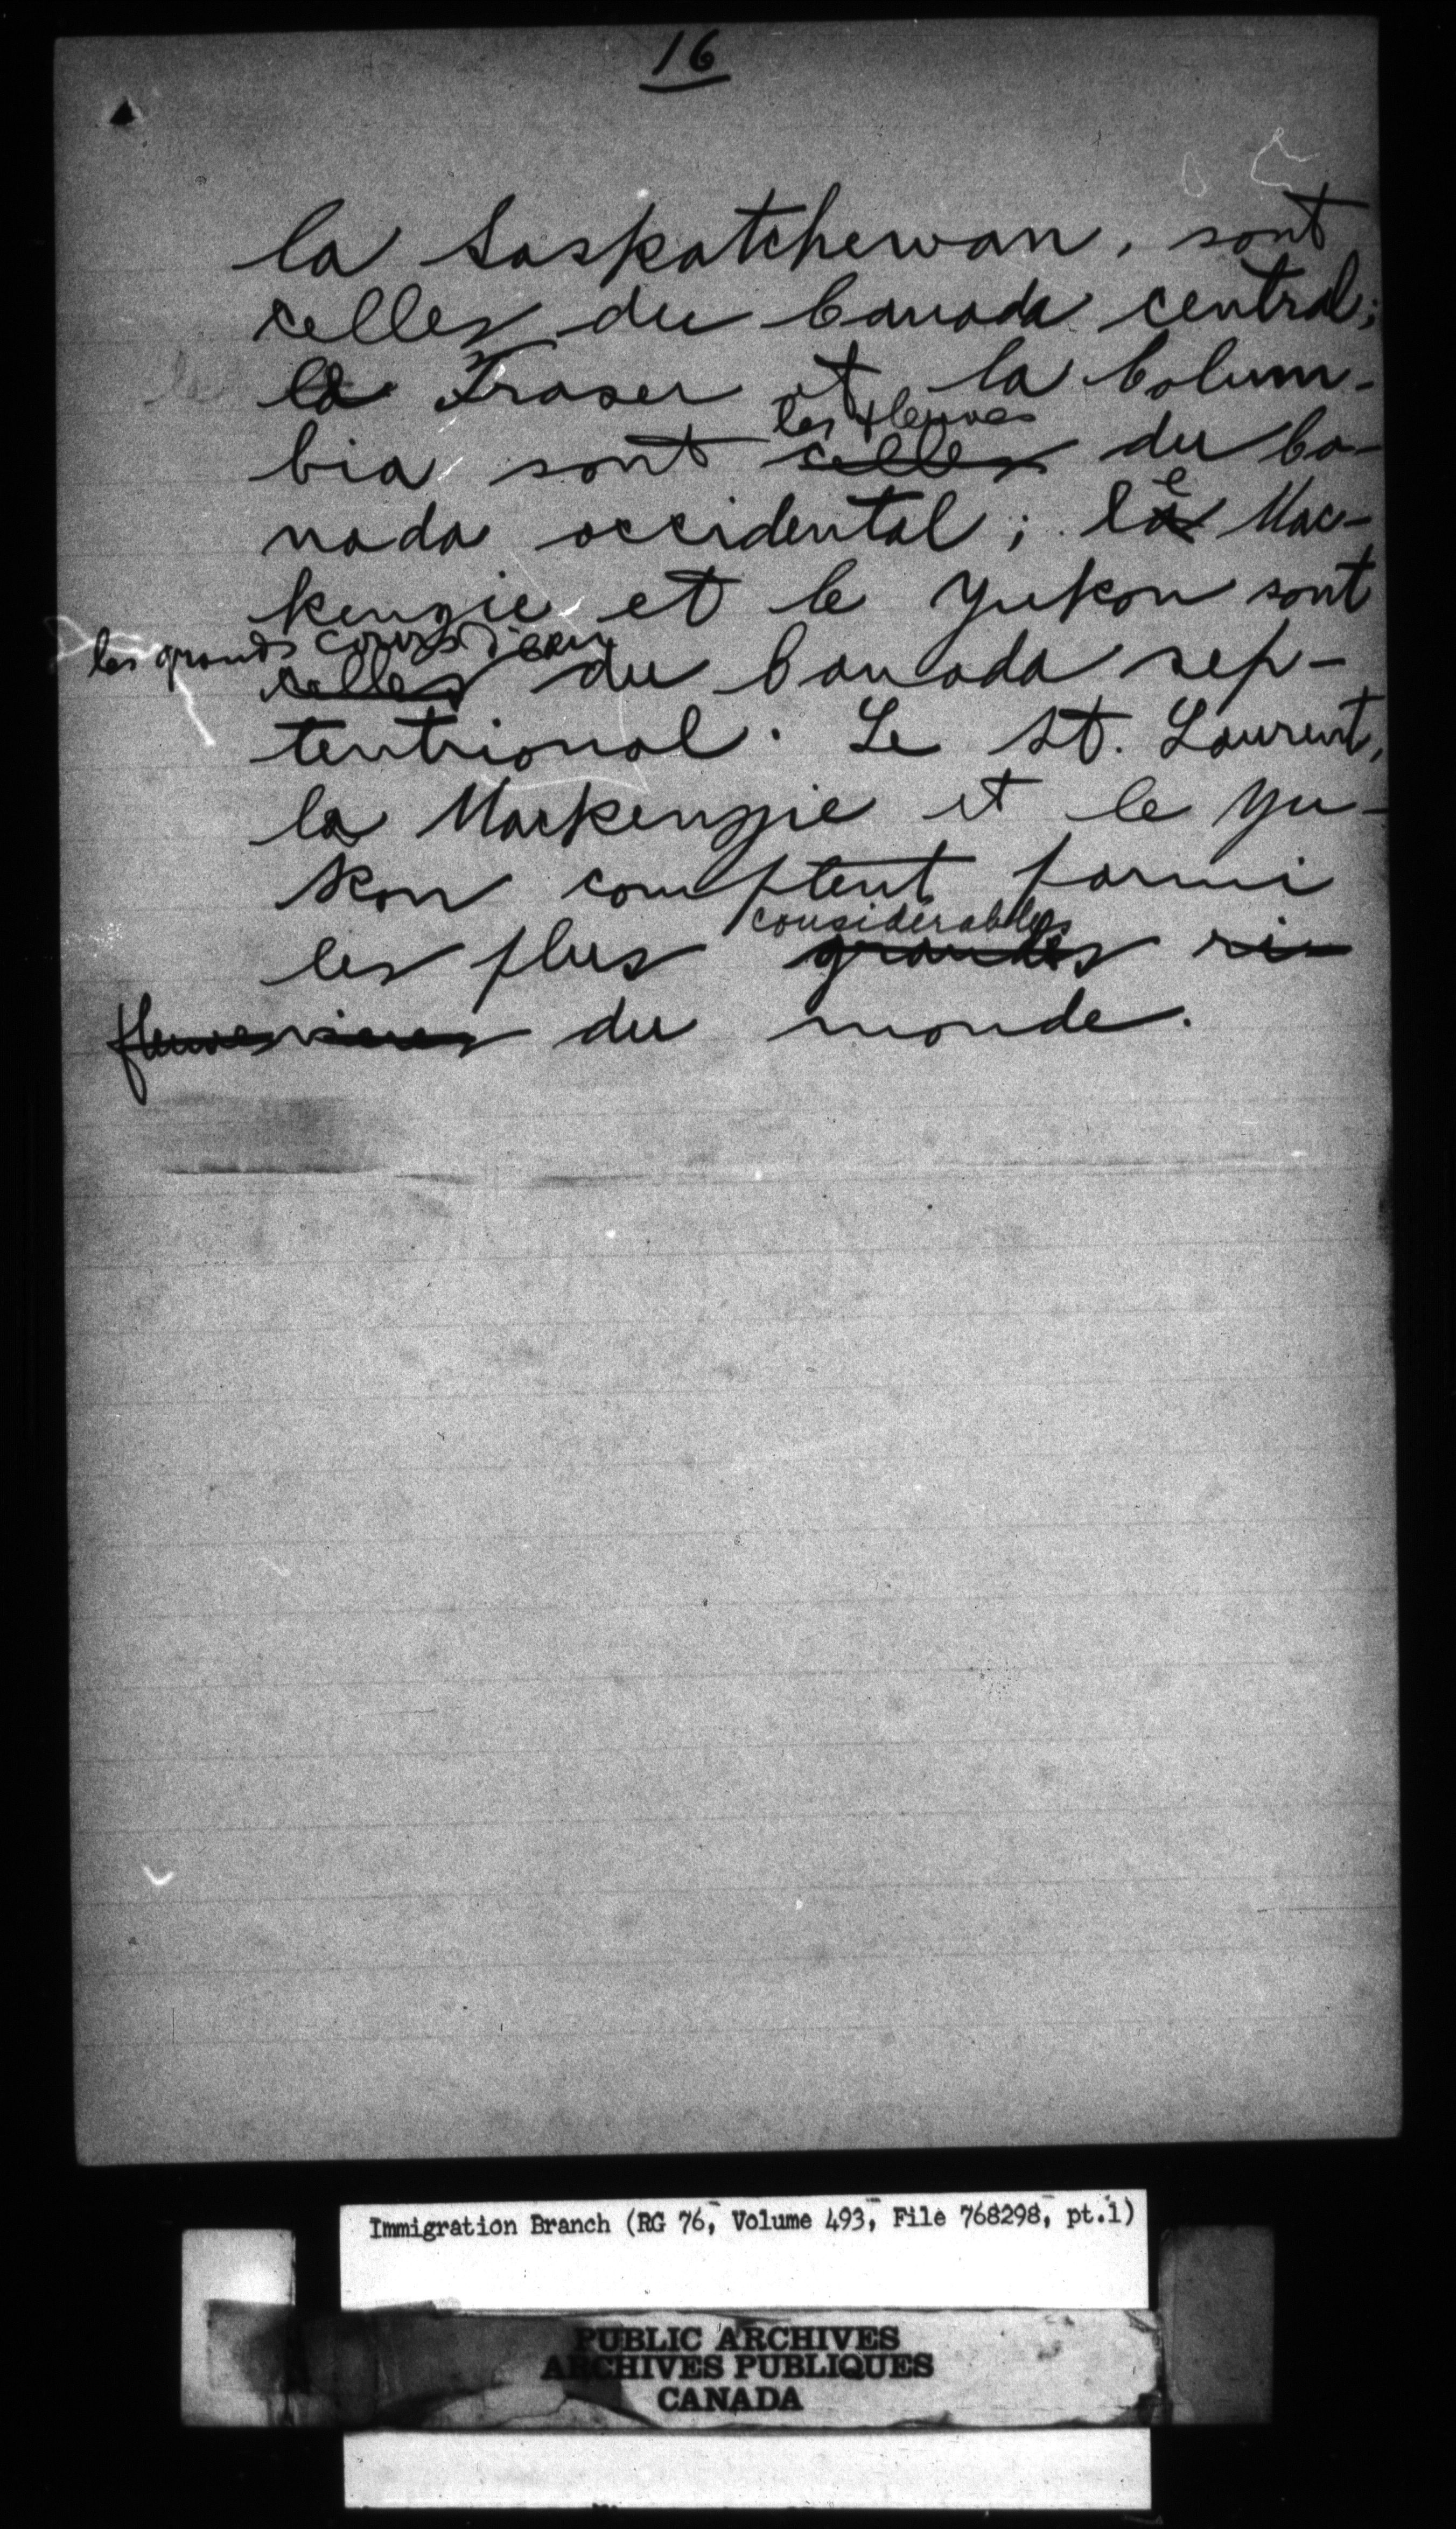 16
la Saskatchewan, sont
celles du Canada central;
le Fraser et la Colum-
les fleuves
bia sont celles du Ca-
nada occidental; la Mac-
e
kenzie et le Yukon sont
les grands cours d'eau
celles du Canada sep-
tentrional. Le St. Laurent,
la Mackenzie et le Yu-
kon comptent parmi
considérables
les plus grands ri
fleuves vieres du monde.
Immigration Branch (RG 76, Volume 493, File 768298, pt.1)
PUBLIC ARCHIVES
ARCHIVES PUBLIQUES
CANADA